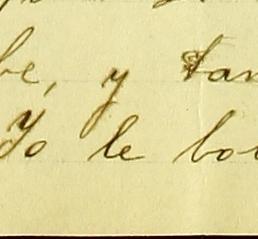 be, y tan
Yo le bo